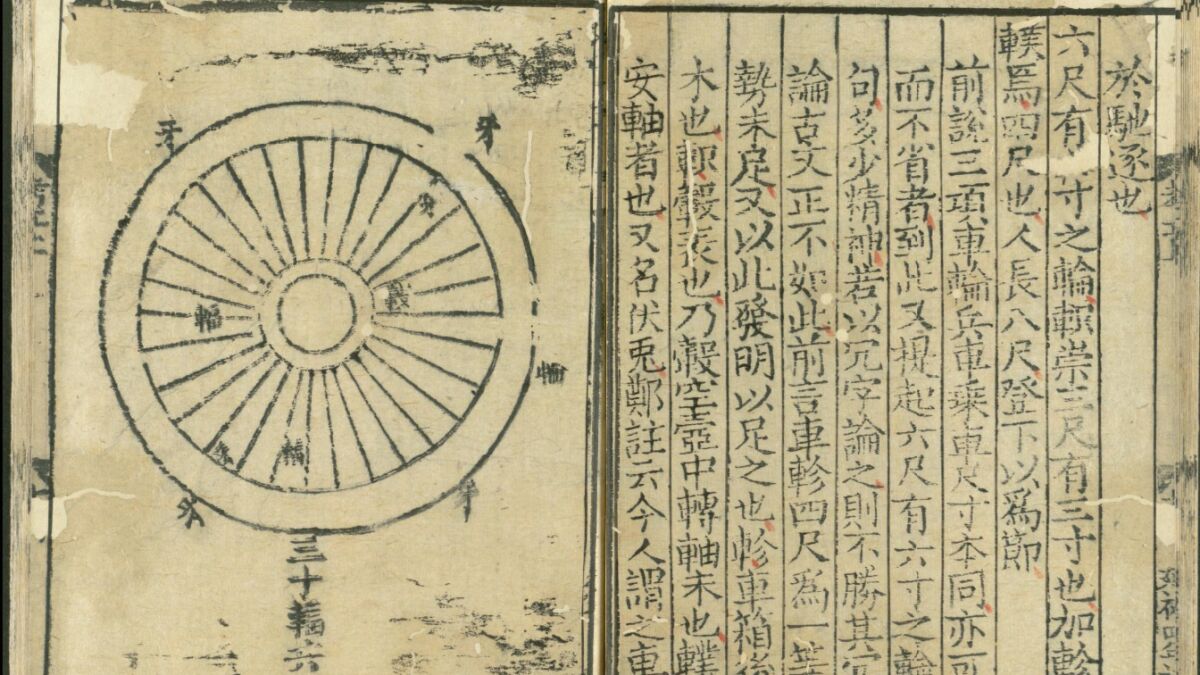 於馳逐也
六尺有寸之輪軹崇三尺有三寸也加軫
轐焉四尺也人長八尺登下以爲節
前說三項車輪兵車乘車尺寸本同亦
而不省者到此又提起六尺有六寸之輪
句多少精神若以冗字論之則不勝其冗
論古文正不如此前言車軫四尺爲一等
勢未足又以此發明以足之也軫車箱後
木也軹轂也乃轂空壺中轉軸末也轐
安軸者也又名伏兔鄭註云今人謂之車
牙
牙
轂
輻
輪
輻
牙
三十輻六